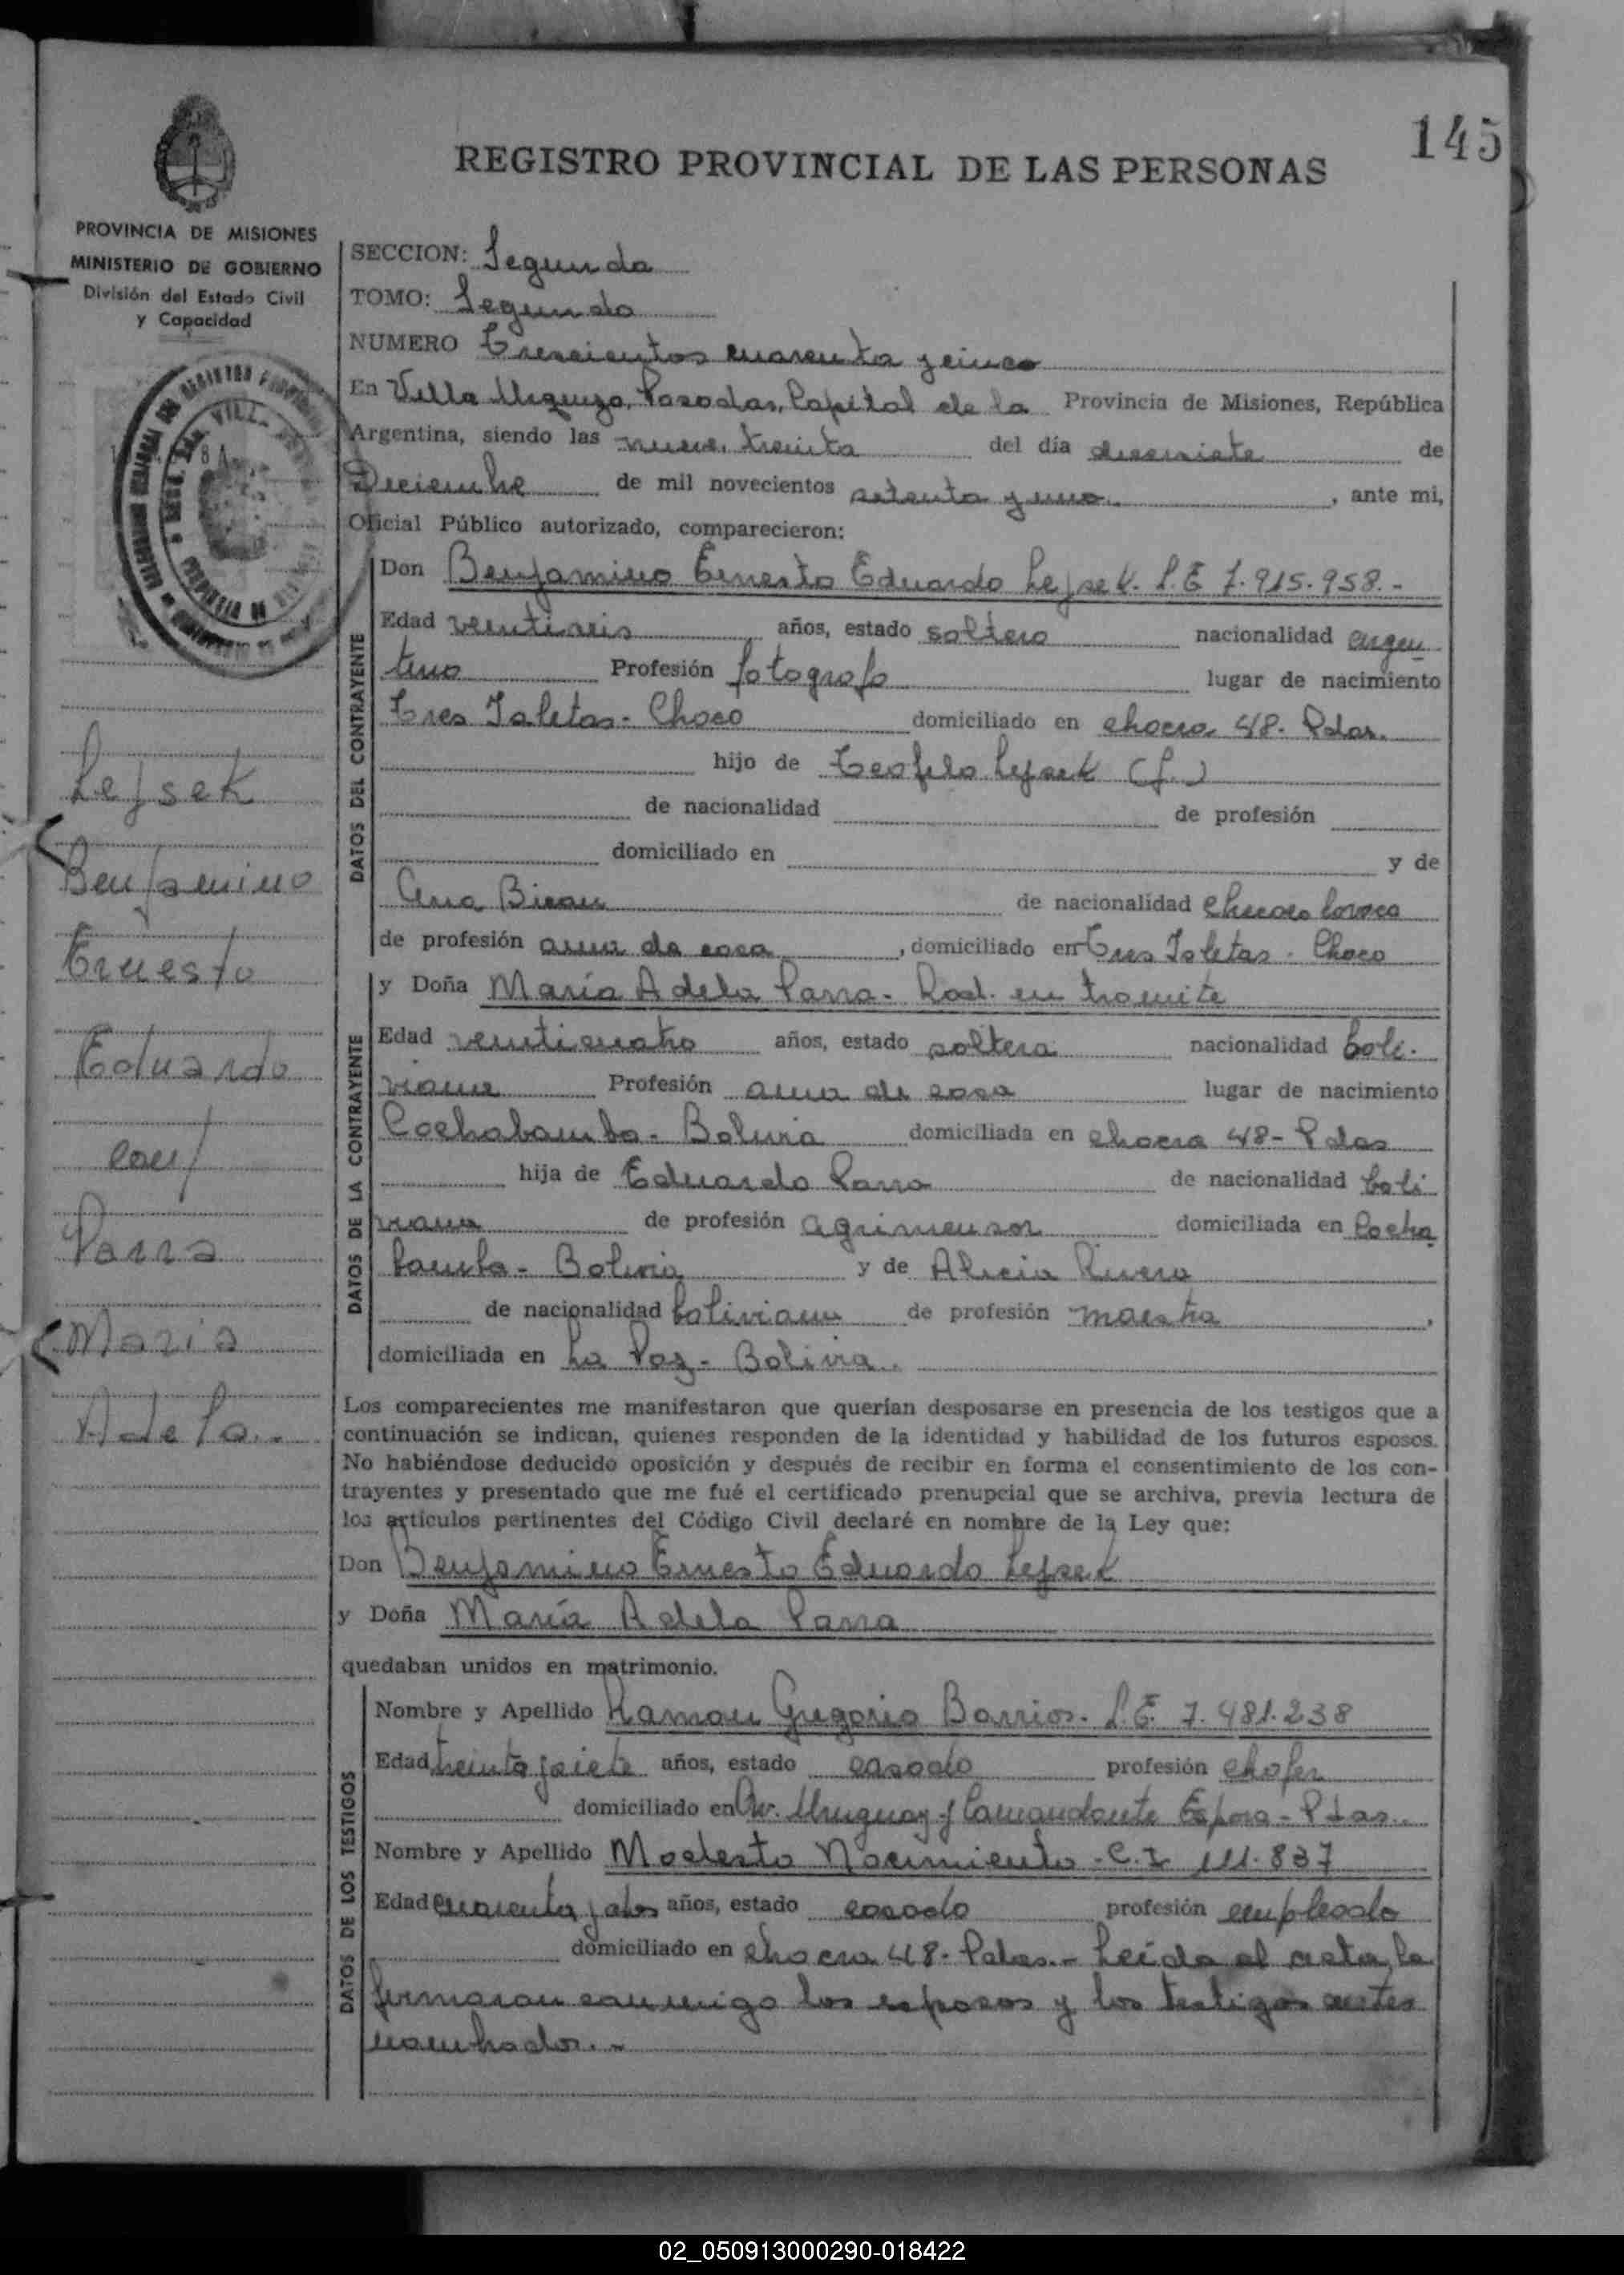 145
REGISTRO PROVINCIAL DE LAS PERSONAS
PROVINCIA DE MISIONES
MINISTERIO DE GOBIERNO
División del Estado Civil
y Capacidad
SECCION: Segunda
TOMO: Segundo
NUMERO Trescientos cuarenta y cinco
En Villa Urquiza, Posadas, Capital de la Provincia de Misiones, República
Argentina, siendo las nueve, treinta del día diecisiete de
Diciembre de mil novecientos setenta y uno, ante mi,
Oficial Público autorizado, comparecieron:
DATOS DEL CONTRAYENTE
Don Benjamino Ernesto Eduardo Lejsek. L.E 7.915.958.-
Edad veintiseis años, estado soltero nacionalidad argen
tino Profesión fotografo lugar de nacimiento
Tres Isletas - Chaco domiciliado en chacra 48. Pdas.
hijo de Teofilo Lejsek (f.)
de nacionalidad de profesión
domiciliado en y de
Ana Biran de nacionalidad checoslovaca
de profesión ama de casa, domiciliado en Tres Isletas - Chaco
DATOS DE LA CONTRAYENTE
y Doña María Adela Parra - Rad. en tramite
Edad veinticuatro años, estado soltera nacionalidad boli-
viana Profesión ama de casa lugar de nacimiento
Cochabamba - Bolivia domiciliada en chacra 48 - Pdas
hija de Eduardo Parra de nacionalidad boli
viana de profesión agrimensor domiciliada en Cocha
bamba - Bolivia y de Alicia Rivera
de nacionalidad boliviana de profesión maestra,
domiciliada en La Paz - Bolivia.
Los comparecientes me manifestaron que querían desposarse en presencia de los testigos que a
continuación se indican, quienes responden de la identidad y habilidad de los futuros esposos.
No habiéndose deducido oposición y después de recibir en forma el consentimiento de los con-
trayentes y presentado que me fué el certificado prenupcial que se archiva, previa lectura de
los artículos pertinentes del Código Civil declaré en nombre de la Ley que:
Don Benjamino Ernesto Eduardo Lejsek
y Doña María Adela Parra
quedaban unidos en matrimonio.
DATOS DE LOS TESTIGOS
Nombre y Apellido Ramon Gregorio Barrios - L.E. 7.481.238
Edad treinta y siete años, estado casado profesión chofer
domiciliado en Av. Uruguay y Comandante Espora - Pdas.
Nombre y Apellido Modesto Nacimiento - C.I 111.837
Edad cuarenta y dos años, estado casado profesión empleado
domiciliado en chacra 48 - Pdas. - Leída el acta, la
firmaron conmigo los esposos y los testigos antes
nombrados.-
Lejsek
Benjamino
Ernesto
Eduardo
con/
Parra
Maria
Adela.-
02_050913000290-018422